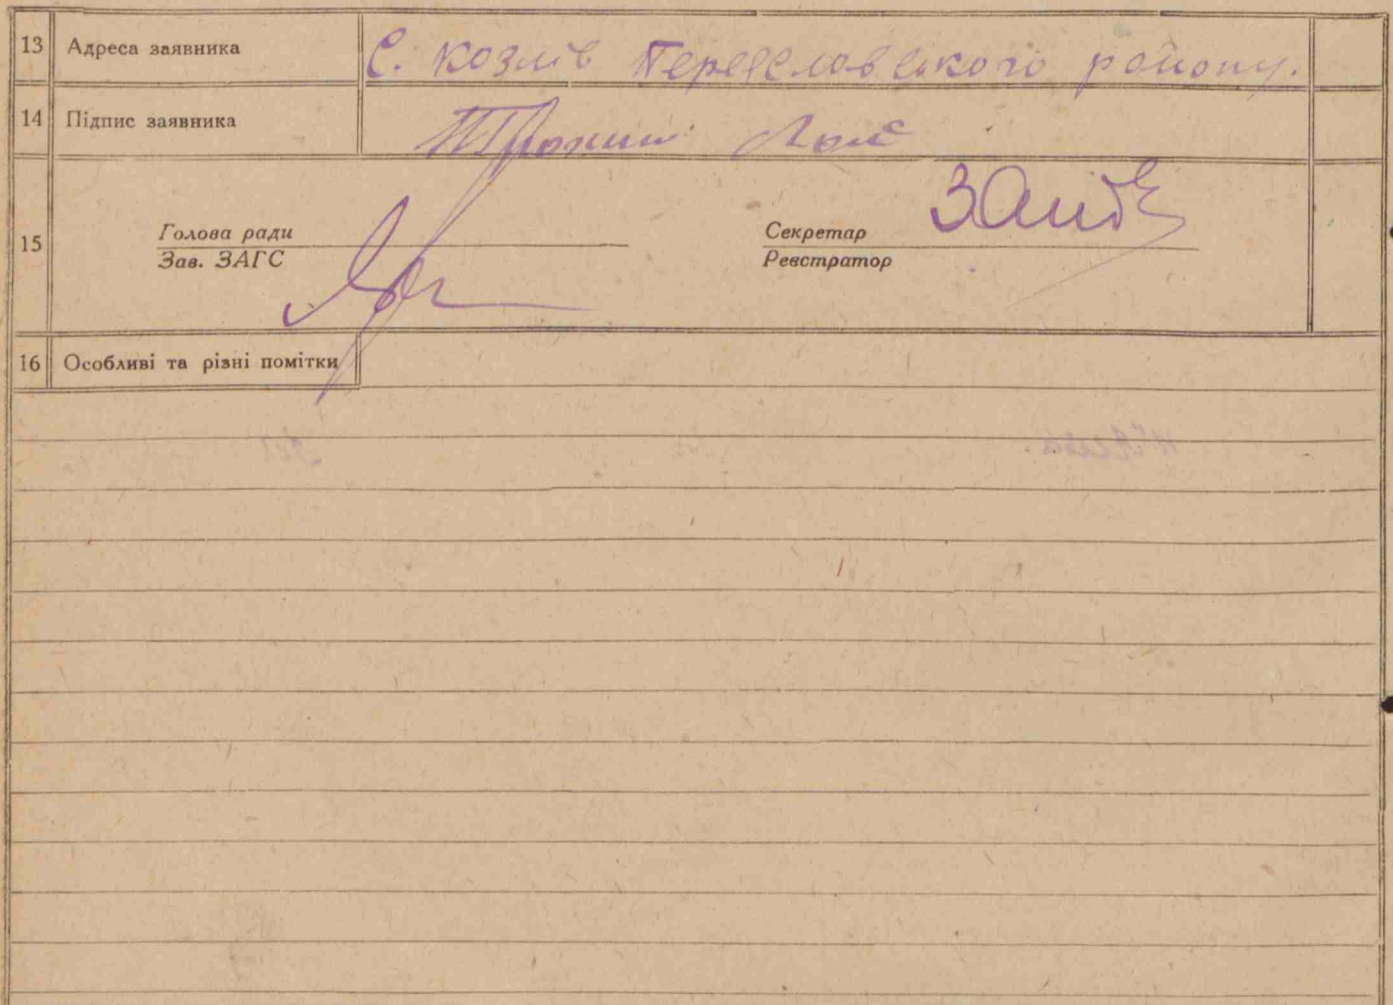 13 Адреса заявника С. Козлів Переяславського району.
14 Підпис заявника
15 Голова ради
Зав. ЗАГС
Секретар
Реєстратор
16 Особливі та різні помітки